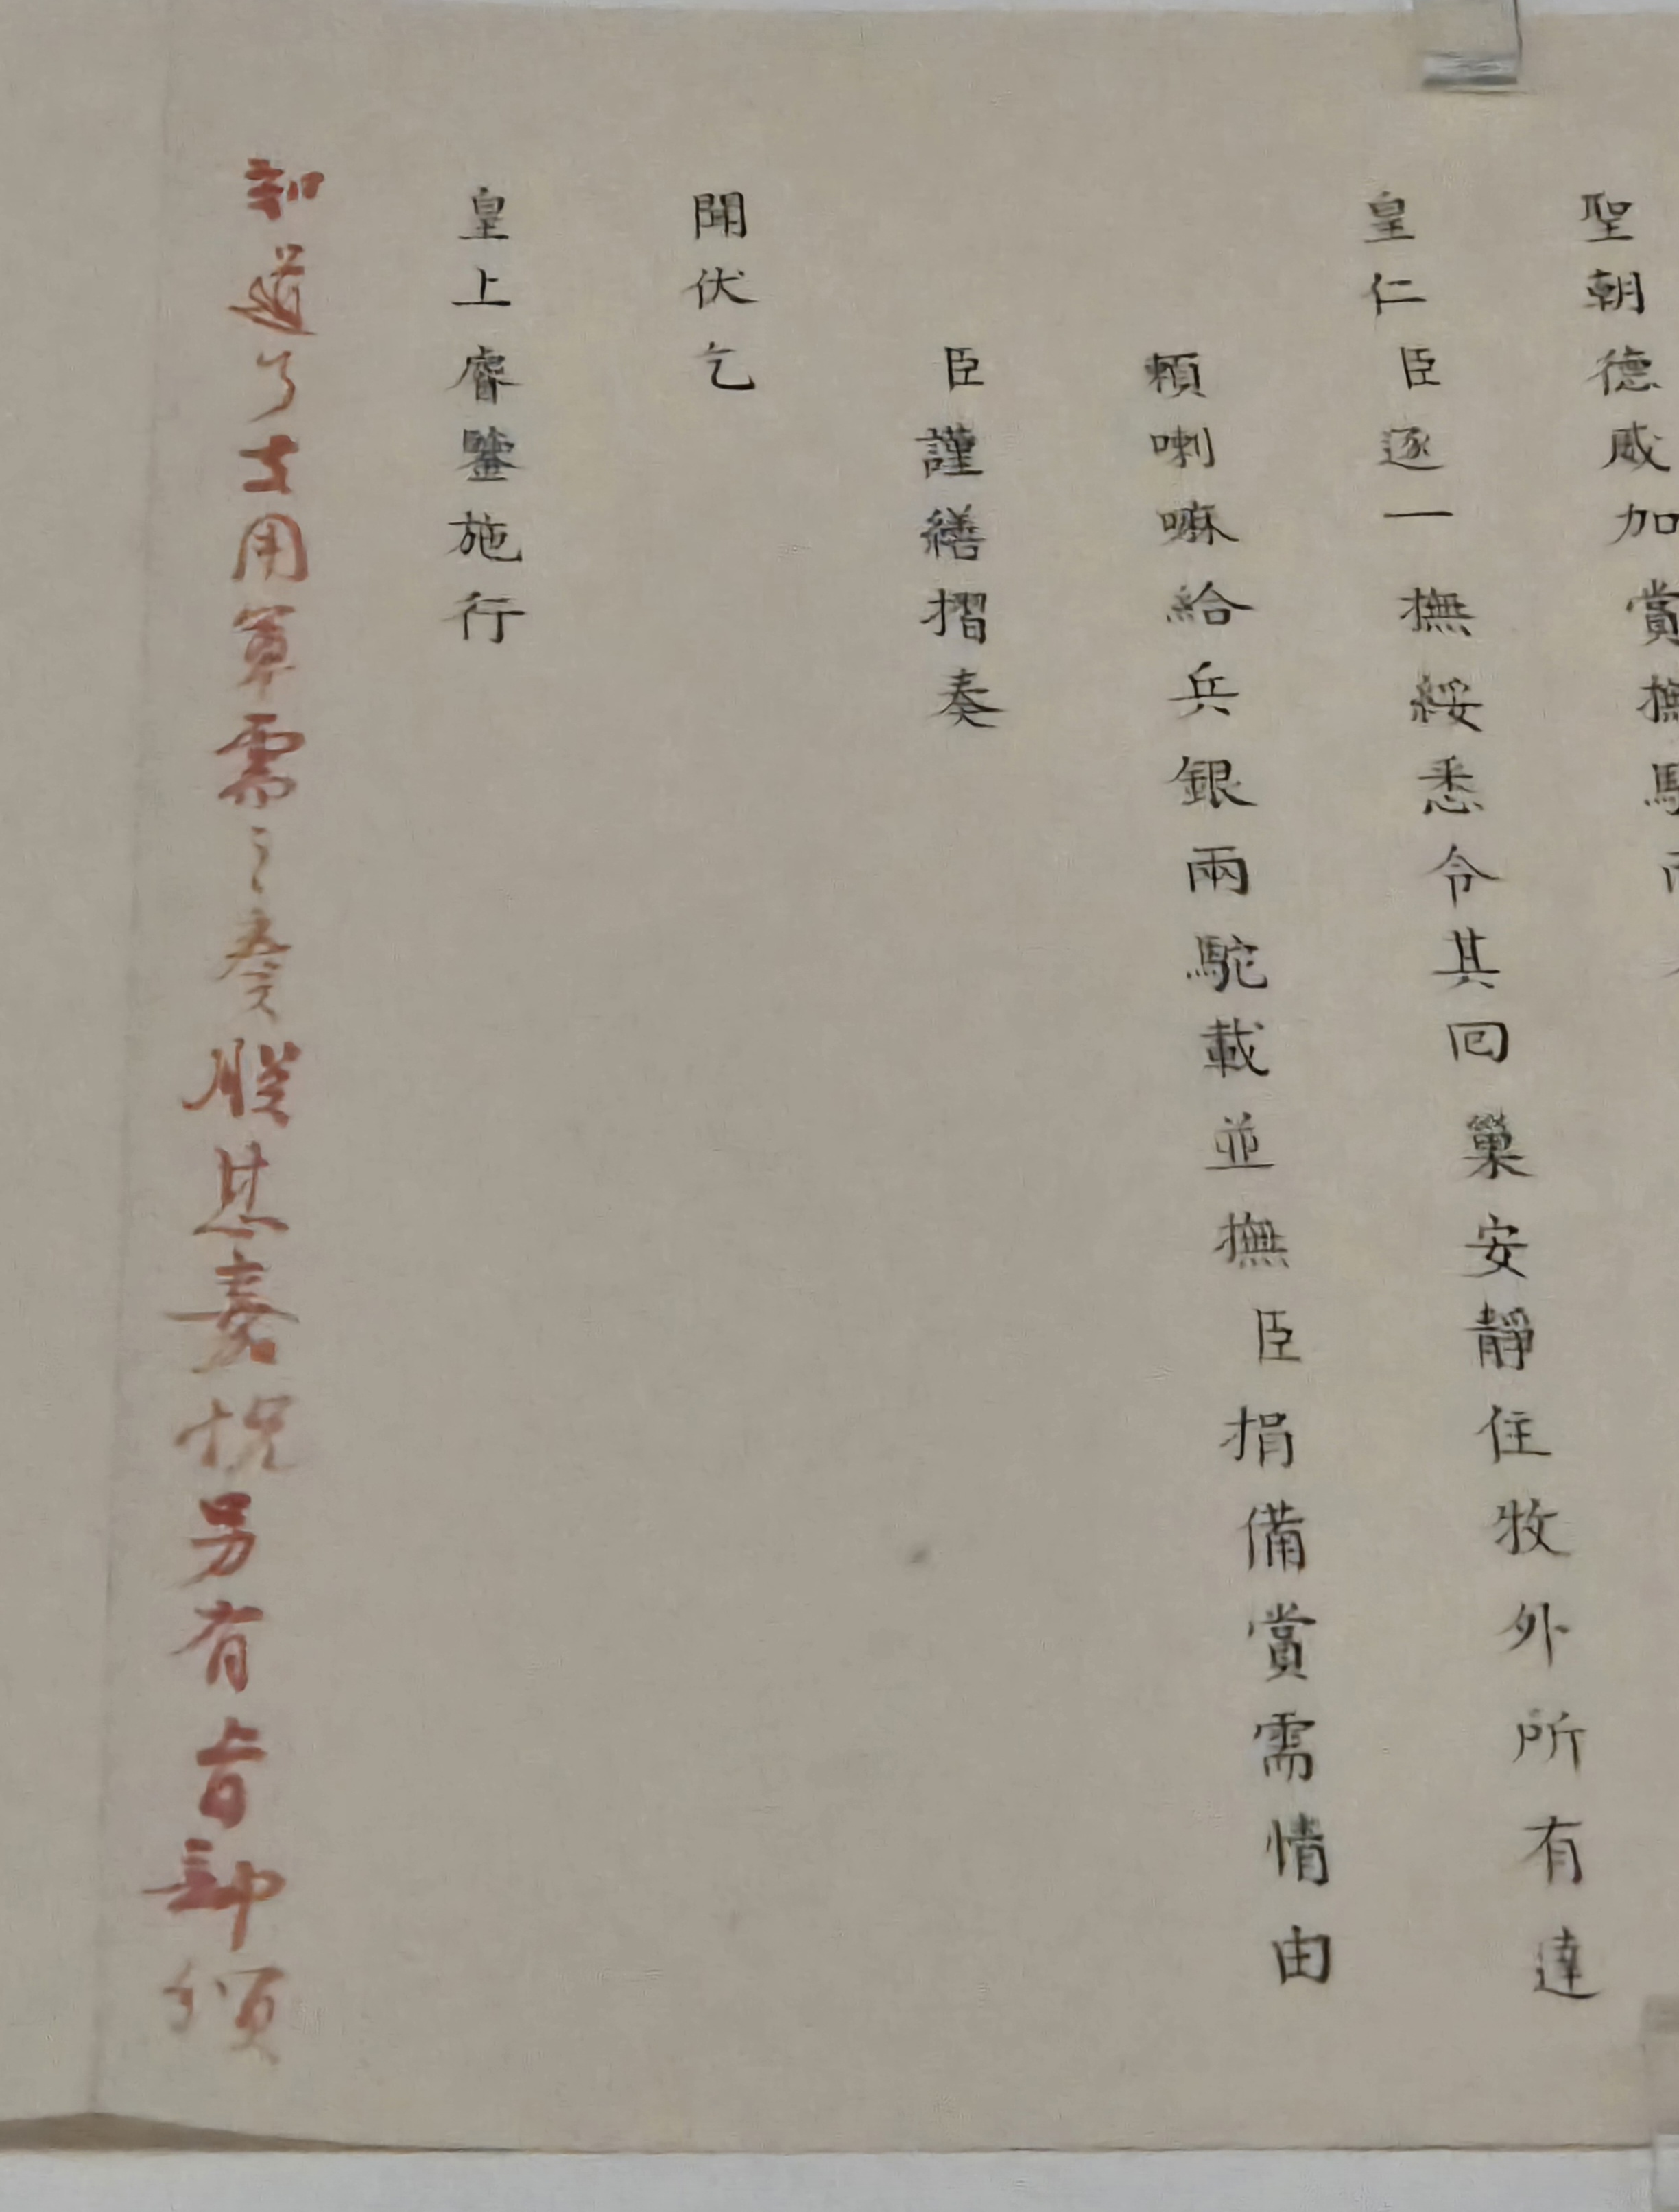 聖朝德威加賞撫
皇仁臣逐一撫綏悉令其回巢安靜住牧外所有達
賴喇嘛給兵銀兩駝載並撫臣捐備賞需情由
臣謹繕摺奏
聞伏乞
皇上睿鑒施行
知道了支用軍需之奏朕甚嘉悅另有旨部頒